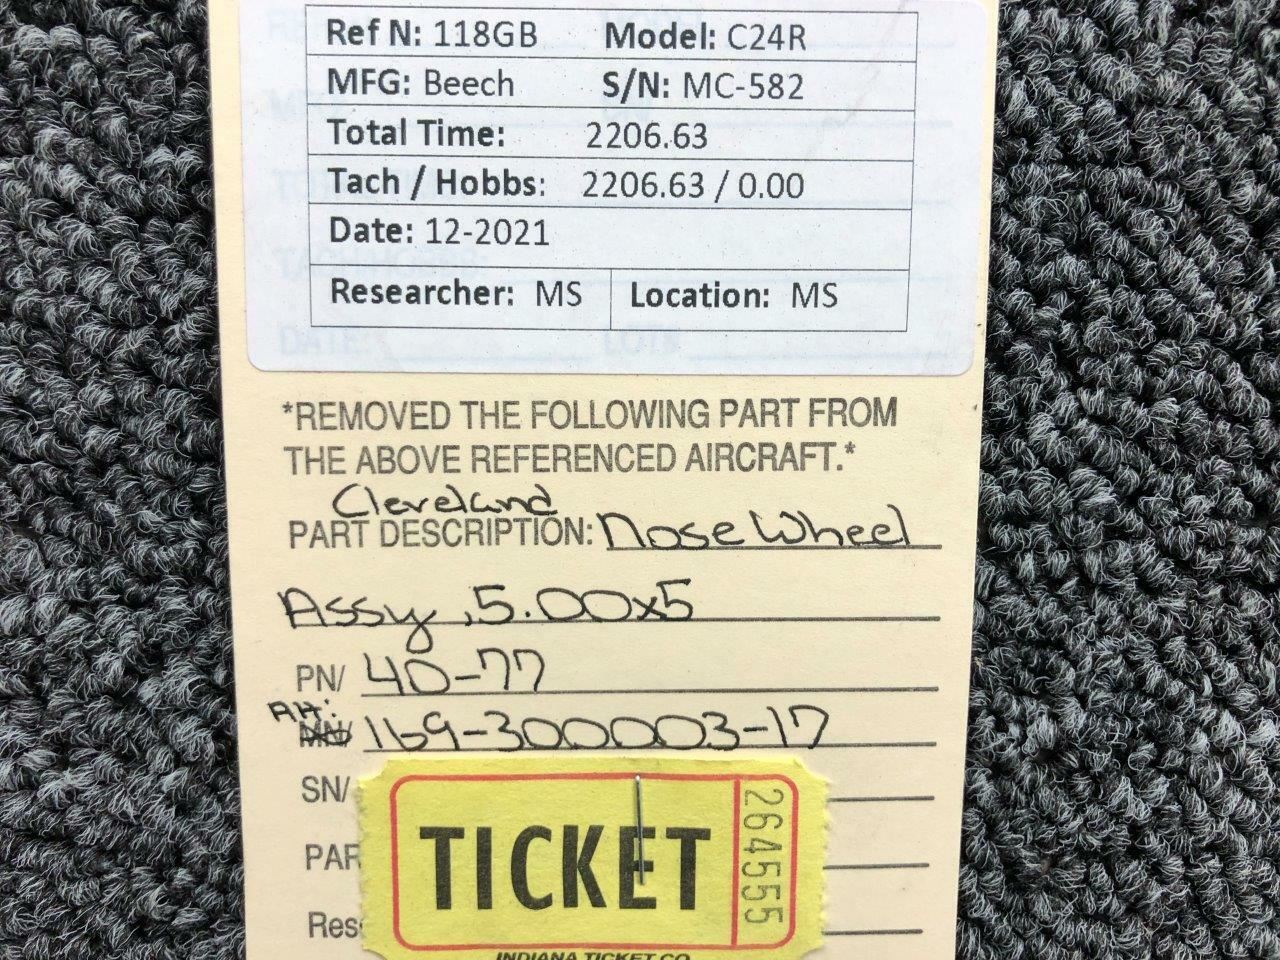 Ref N: 118GB Model: C24R
MFG: Beech S/N: MC-582
Total Time: 2206.63
Tach / Hobbs: 2206.63 / 0.00
Date: 12-2021
Researcher: MS Location: MS
DATE: LOT#
*REMOVED THE FOLLOWING PART FROM
THE ABOVE REFERENCED AIRCRAFT.*
Cleveland
PART DESCRIPTION: Nose Wheel
Assy, 5.00x5
PN/ 40-77
Alt:
169-300003-17
SN/
PAR
Res
TICKET 264555
INDIANA TICKET CO